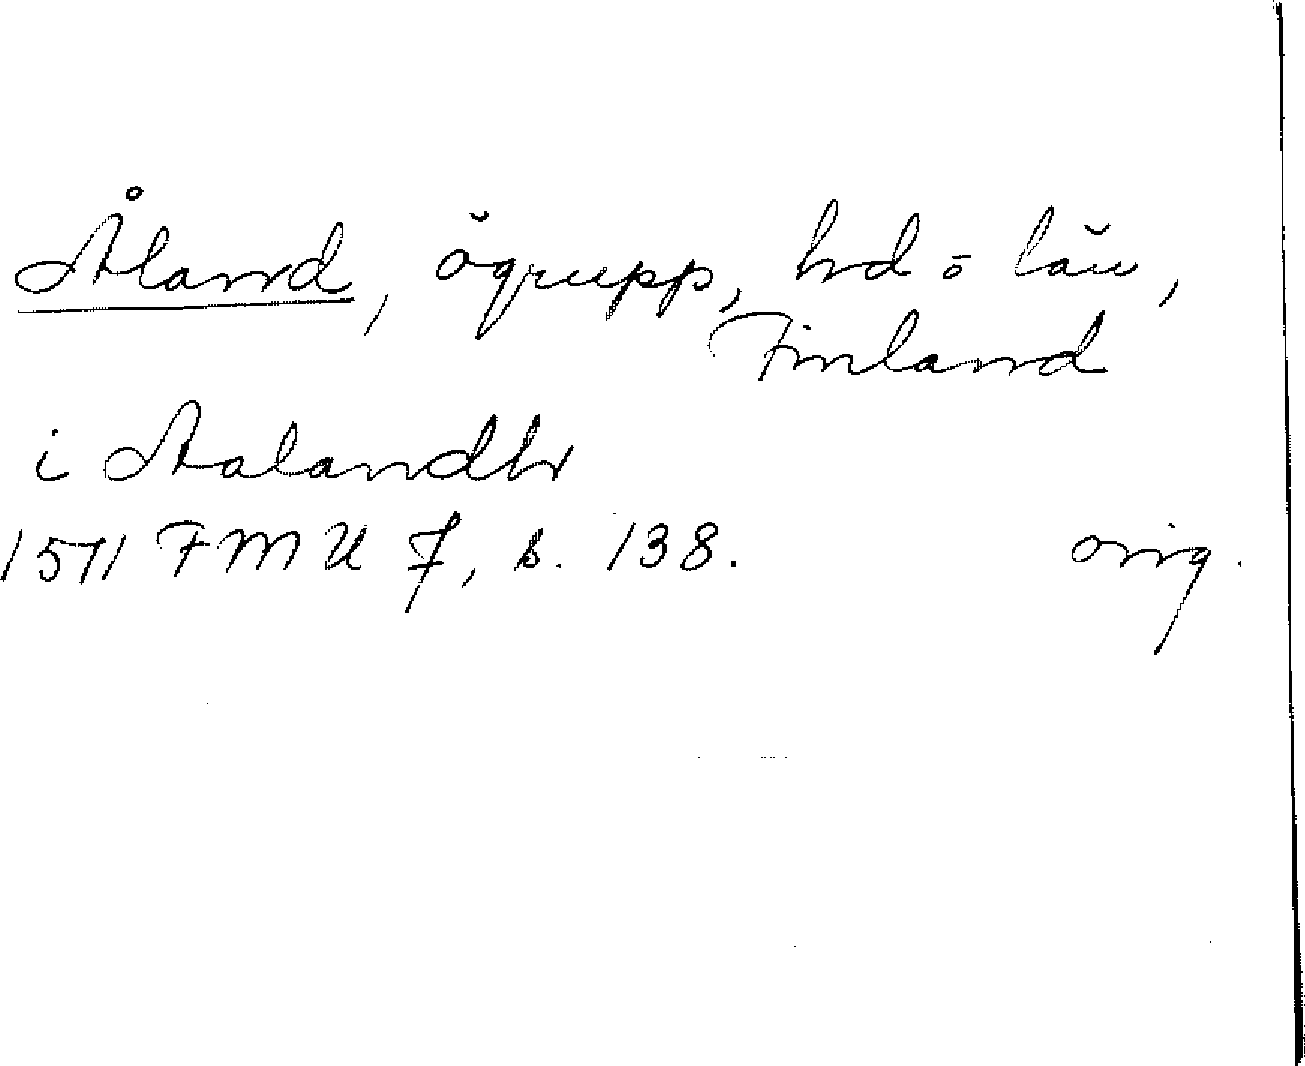 Åland, ögrupp, hd o län,
Finland
i Aalandh
1511 FMU 7, s. 138. orig.